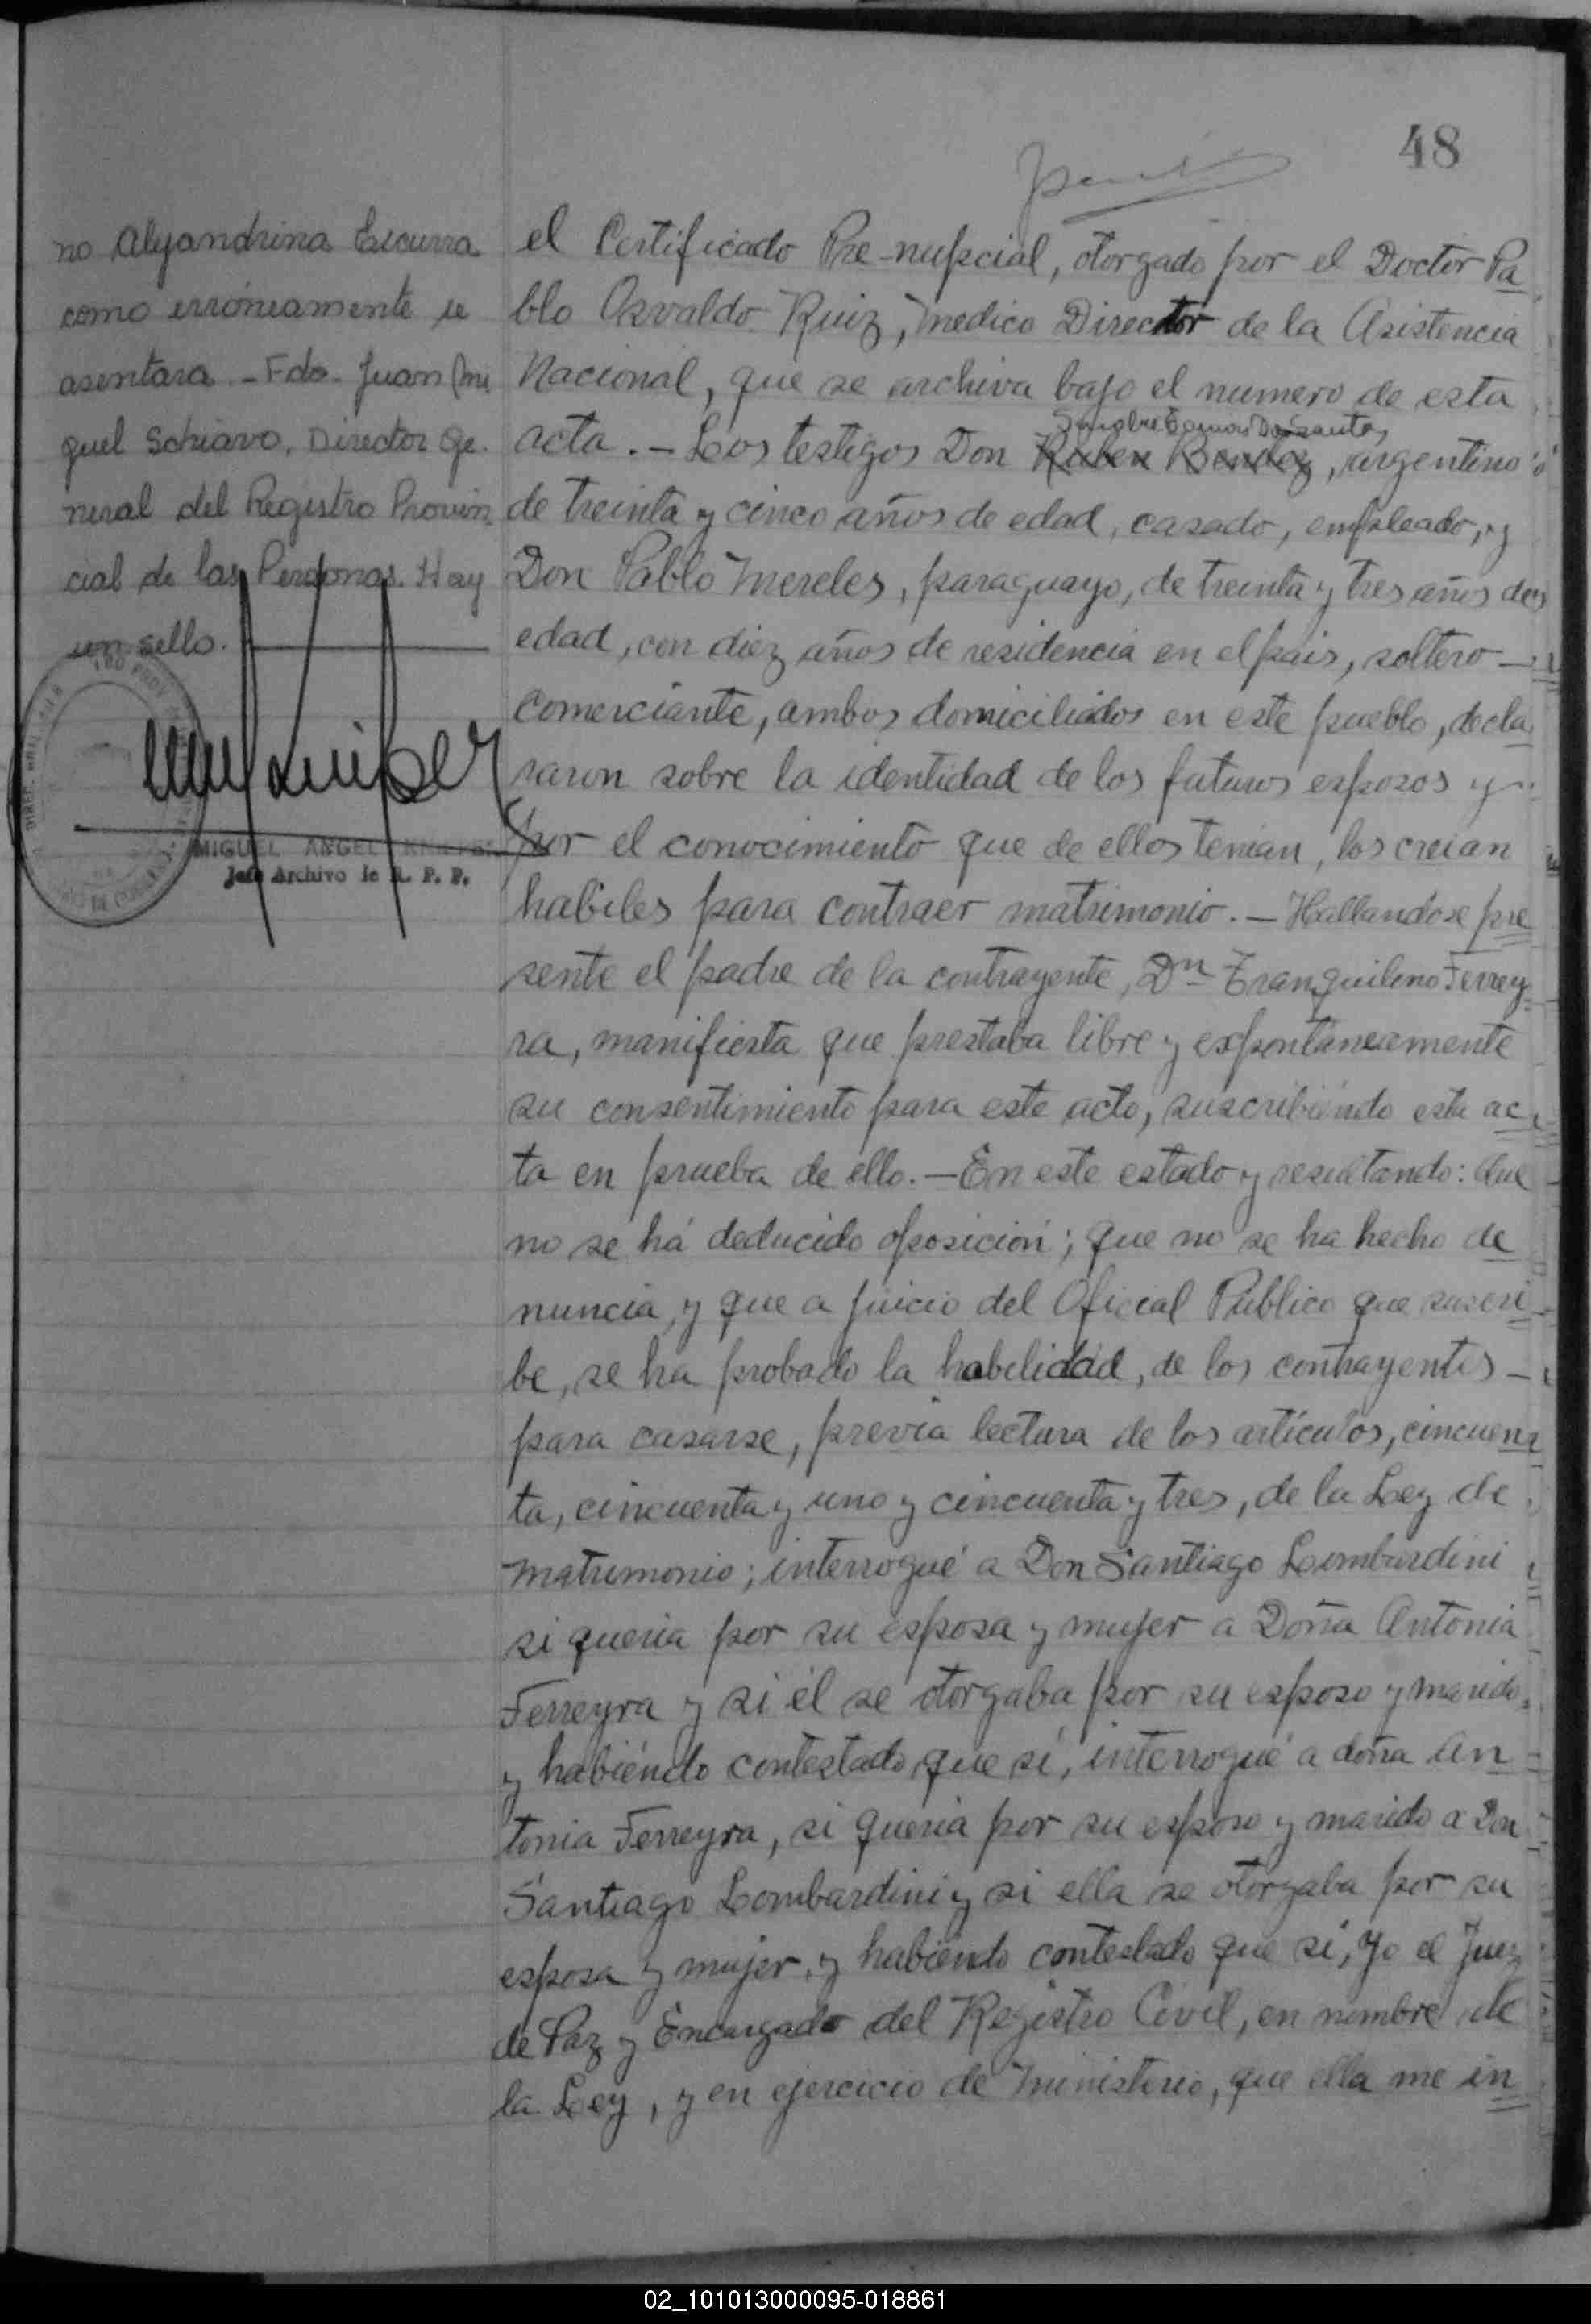 48
no Alejandrina Escurra
como erróneamente se
asentara.- Fdo. Juan Mi
guel Schiavo, Director Ge.
neral del Registro Provin
cial de las Personas. Hay
un sello.
MIGUEL ANGEL
Jefe Archivo de R. P. P.
el Certificado Pre-nupcial, otorgado por el Doctor Pa
blo Osvaldo Ruiz, Medico Director de la Asistencia
Nacional, que se archiva bajo el numero de esta
Dos Santos
acta.- Los testigos Don Ruben Benitez, argentino
de treinta y cinco años de edad, casado, empleado, y
Don Pablo Mereles, paraguayo, de treinta y tres años de
edad, con diez años de residencia en el pais, soltero —
comerciante, ambos domiciliados en este pueblo, decla
raron sobre la identidad de los futuros esposos y
por el conocimiento que de ellos tenian, los creian
habiles para contraer matrimonio.- Hallandose pre
sente el padre de la contrayente, Dn Tranquilino Ferrey
ra, manifiesta que prestaba libre y espontáneamente
su consentimiento para este acto, suscribiéndo esta ac
ta en prueba de ello.- En este estado y resultando: Que
no se há deducido oposición; que no se ha hecho de
nuncia, y que a juicio del Oficial Público que suscri
be, se ha probado la habilidad, de los contrayentes —
para casarse, previa lectura de los artículos, cincuen
ta, cincuenta y uno y cincuenta y tres, de la Ley de
Matrimonio; interrogué a Don Santiago Lombardini
si queria por su esposa y mujer a Doña Antonia
Ferreyra y si él se otorgaba por su esposo y marido,
y habiéndo contestado que sí, interrogué a doña An
tonia Ferreyra, si queria por su esposo y marido a Don
Santiago Lombardini y si ella se otorgaba por su
esposa y mujer, y habiéndo contestado que sí, Yo el Juez
de Paz y Encargado del Registro Civil, en nombre de
la Ley, y en ejercicio de Ministerio, que ella me in
02_101013000095-018861